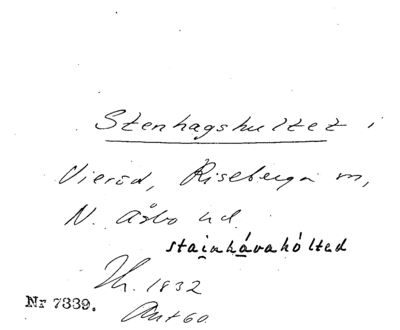 Stenhagshultet i
Vieröd, Riseberga m,
N. Åsbo hd.
stainhávahólted
Th. 1832
Nr 7339.